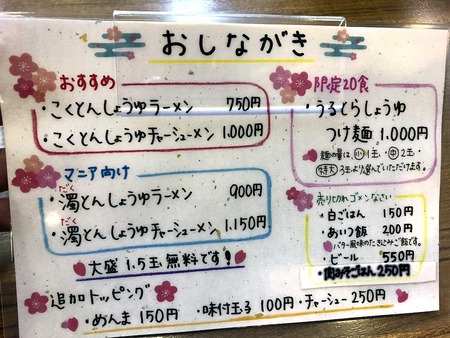 おしながき
おすすめ
・こくとんしょうゆラーメン 750円
・こくとんしょうゆチャーシューメン 1.000円
マニア向け
・濁とんしょうゆラーメン 900円
だく
・濁とんしょうゆチャーシューメン 1.150円
だく
大盛1.5玉無料です!
追加トッピング
・めんま150円 ・味付玉子100円・チャーシュー250円
限定20食
・うるとらしょうゆ
つけ麺 1.000円
麺の量は、小1玉・中2玉・
特大3玉より選んでいただけます。
売り切れゴメンなさい
・白ごはん 150円
・あいつ飯 200円
バター風味のたきこみご飯です。
・ビール 550円
・肉みそごはん250円